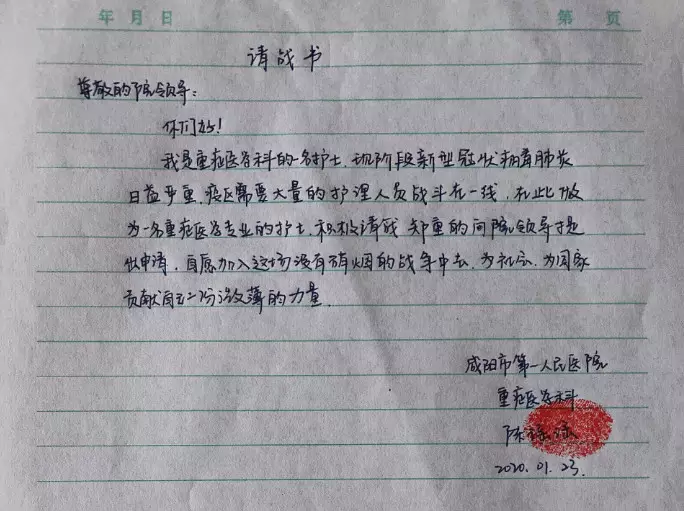 年 月 日 第 页
请战书
尊敬的院领导：
你们好！
我是重症医学科的一名护士，现阶段新型冠状病毒肺炎
日益严重，疫区需要大量的护理人员战斗在一线，在此
为一名重症医学专业的护士，积极请战，郑重的向院领导提
出申请，自愿加入这场没有硝烟的战争中去，为社会，为国家
贡献自己一份微薄的力量．
咸阳市第一人民医院
重症医学科
陈
2020.01.23.